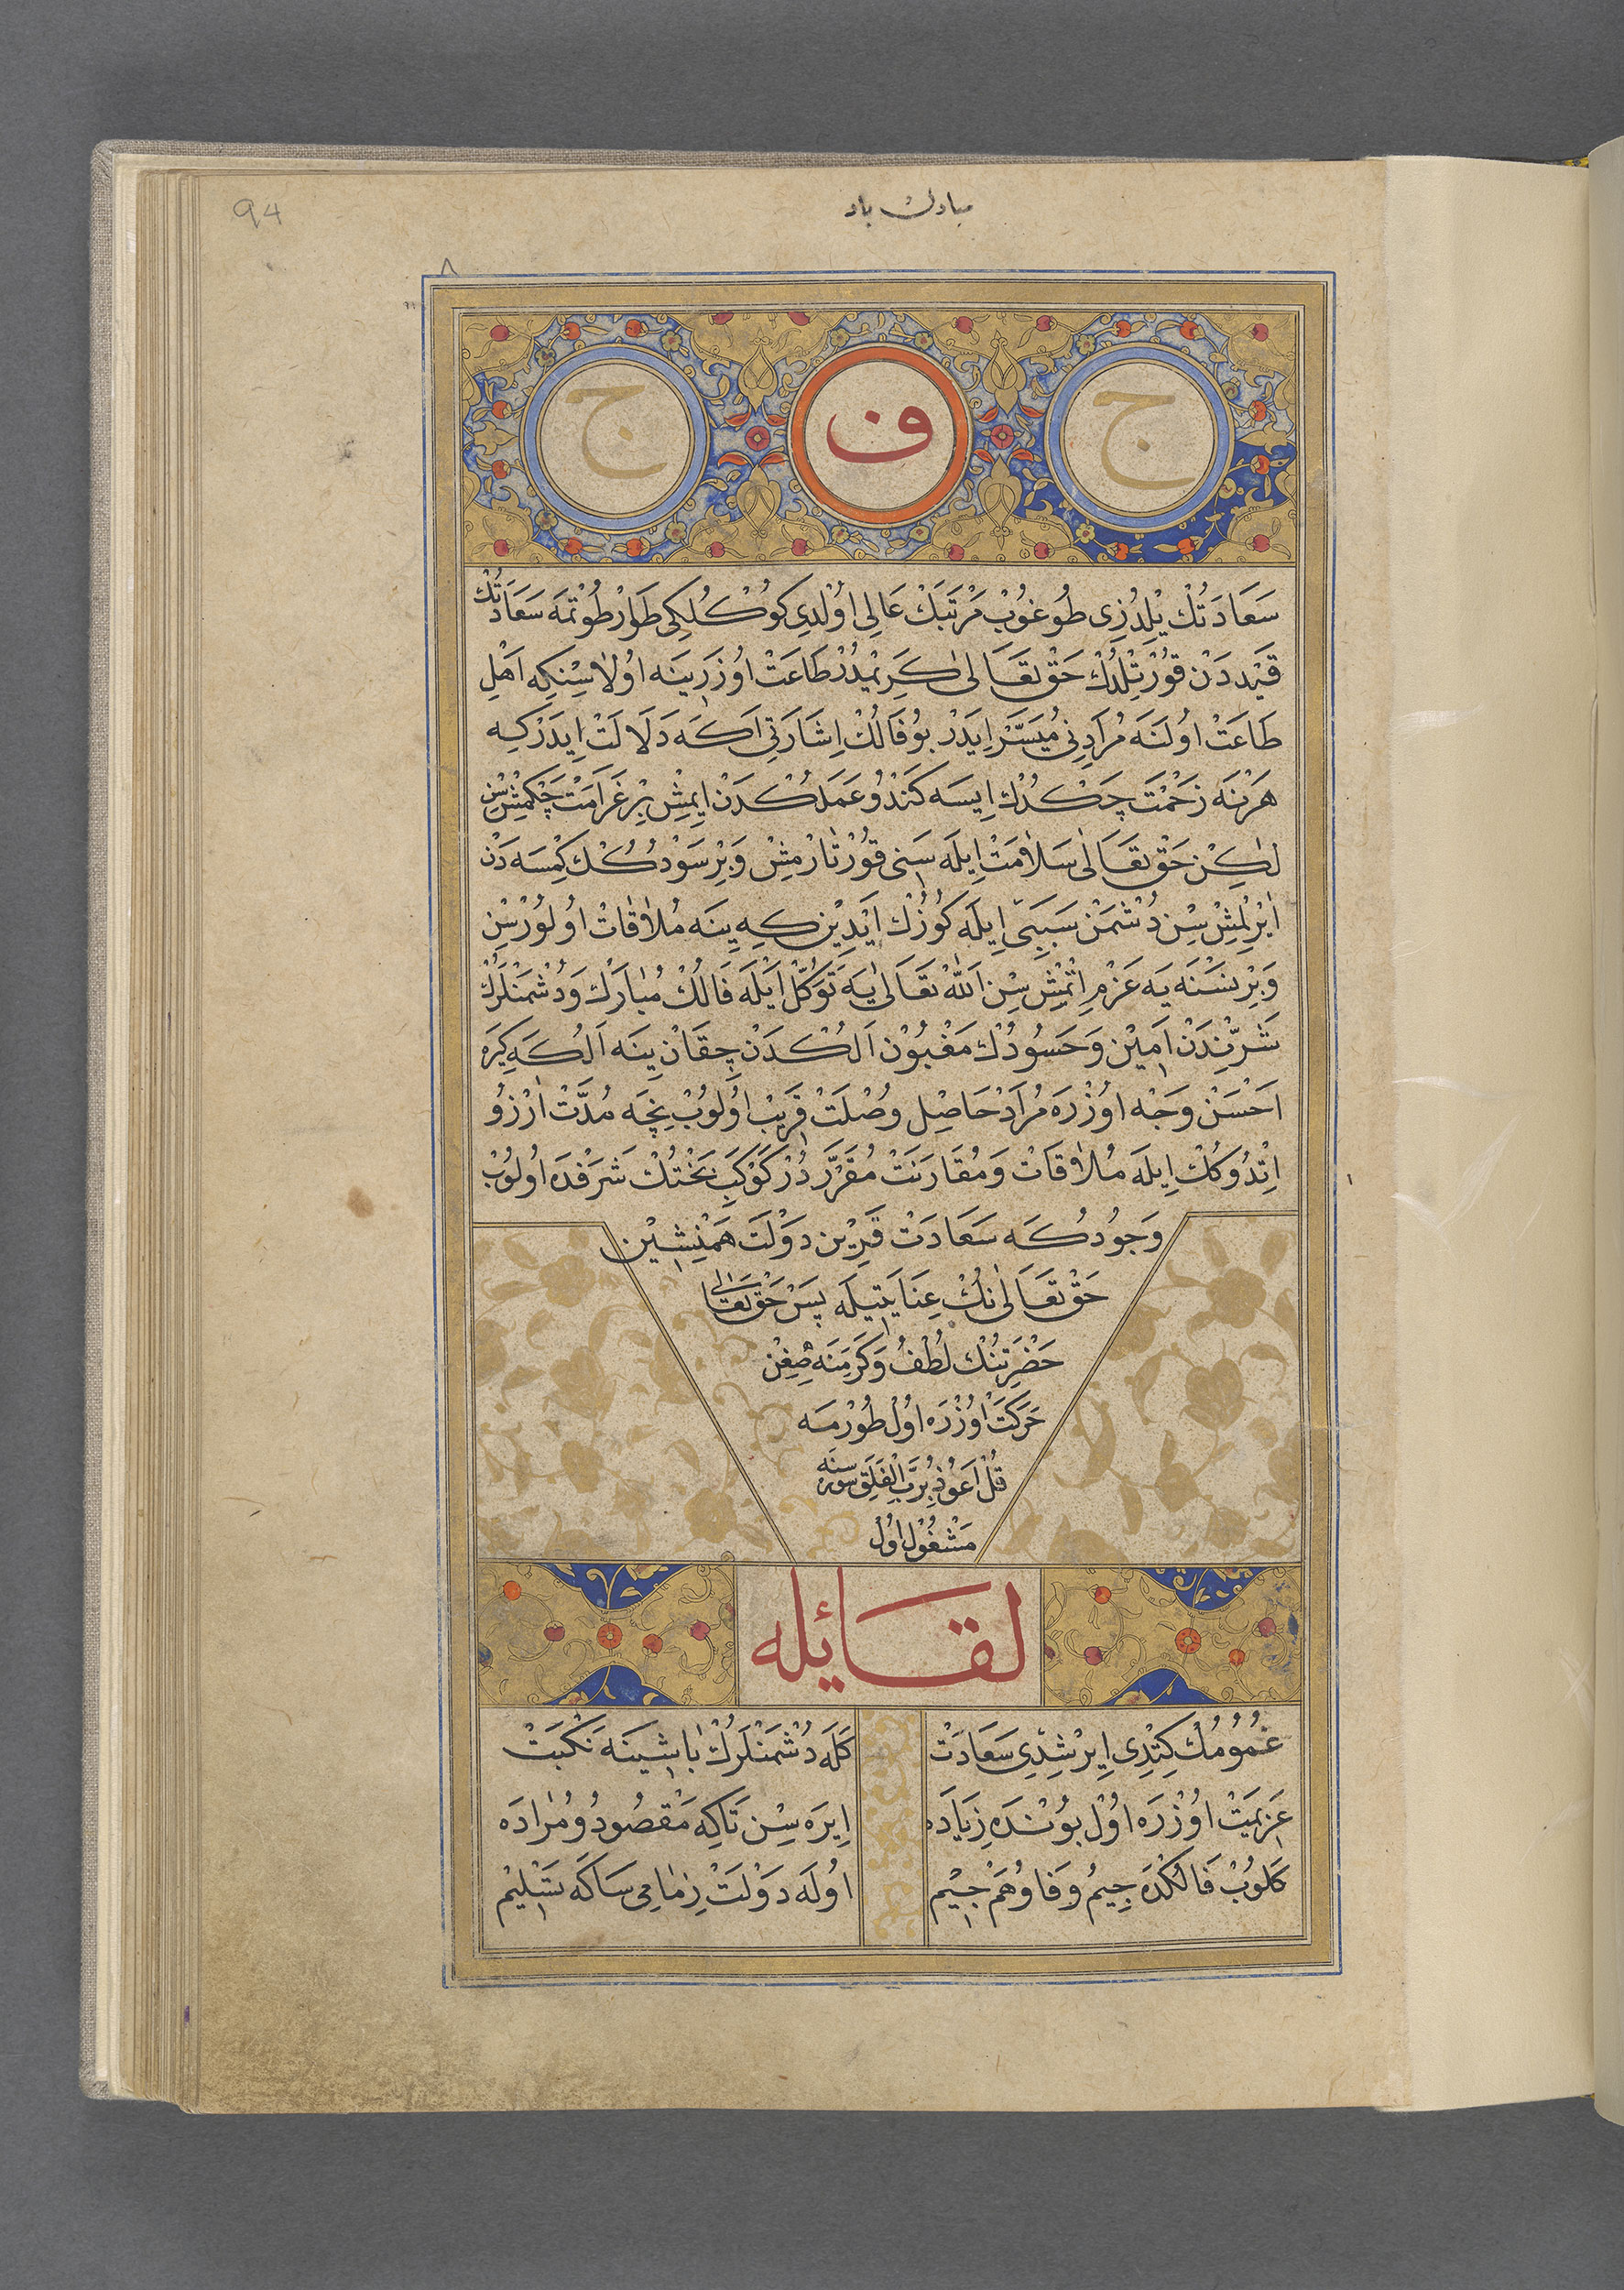 94
مبارك باد
٨
ج ف ج
سَعَادَتُكْ يِلْدُزِی طُوغُوبْ مَرْتَبَكْ عَالِی اُولْدِی كُوكْلُكِی طَوارْ طُوتْمَه سَعَادَتُكْ
قَيْدِدَنْ قُورْتِلْدُكْ حَقْ تَعَالٰی كَرِيمْدُرْ طَاعَتْ اُوزَرِينَه اُولاسِنْكِه اَهْلِ
طَاعَتْ اُولَنَه مُرَادِنِی مُيَسَّرْ اِيدَرْ بُو فَالُكْ اِشَارَتِی اَكَه دَلَالَتْ اِيدَرْكِه
هَرْنَه زَحْمَتْ چَكْدُكْ اِيسَه كَنْدُو عَمَلُكْدَنْ اِيمِشْ بِرْ غَرَامَتْ چَكْمِشْ سِنْ
لٰكِنْ حَقْ تَعَالٰی سَلَامَتْ اِيلَه سَنِی قُورْتَارْمِشْ وَبِرْ سَوْدُكُكْ كِمْسَه دَنْ
اَيْرِلْمِشْ سِنْ دُشْمَنْ سَبَبِی اِيلَه كُوزُكْ اَيْدِينْ كِه يِنَه مُلَاقَاتْ اُولُورْسِنْ
وَبِرْ نَسْنَه يَه عَزْمِ اِتْمِشْ سِنْ اَللّٰهْ تَعَالٰی يَه تَوَكُّلْ اَيْلَه فَالُكْ مُبَارَكْ وَدُشْمَنْلَرُكْ
شَرِّنْدَنْ اَمِينْ وَحَسُودُكْ مَغْبُونْ اَلُكْدَنْ چِقَانْ يِنَه اَلُكَه كِيرَه
اَحْسَنْ وَجْه اُوزْرَه مُرَادْ حَاصِلْ وُصْلَتْ قَرِيبْ اُولُوبْ نِچَه مُدَّتْ اَرْزُو
اِتْدُوكُكْ اِيلَه مُلَاقَاتْ وَمُقَارَنَتْ مُقَرَّرْ دُرْ كَوْكَبِ بَخْتُكْ شَرَفْدَه اُولُوبْ
وَجُودُكَه سَعَادَتْ قَرِينْ دَوْلَتْ هَمْنِشِينْ
حَقْ تَعَالٰی نُكْ عِنَايَتِيلَه پَسْ حَقْ تَعَالٰی
حَضْرَتِنُكْ لُطْفُ وَكَرَمِنَه صِغِنْ
حَرَكَتْ اُوزْرَه اُولْ طُورْمَه
قُلْ اَعُوذُ بِرَبِّ الْفَلَقِ سُورَه سِنَه
مَشْغُولْ اُولْ
لقـائله
غُمُومُكْ كِتْدِی اِيرْشِدِی سَعَادَتْ كَلَه دُشْمَنْلَرُكْ بَاشِينَه نَكْبَتْ
عَزِيمَتْ اُوزْرَه اُولْ بُونْدَه زِيَادَه اِيرَه سِنْ تَاكِه مَقْصُودُ وُ مُرَادَه
كَلُوبْ فَالُكْدَه جِيمُ وفَا وُ هَمْ جِيمْ اُولَه دَوْلَتْ زِمَامِی سَاكَه تَسْلِيمْ